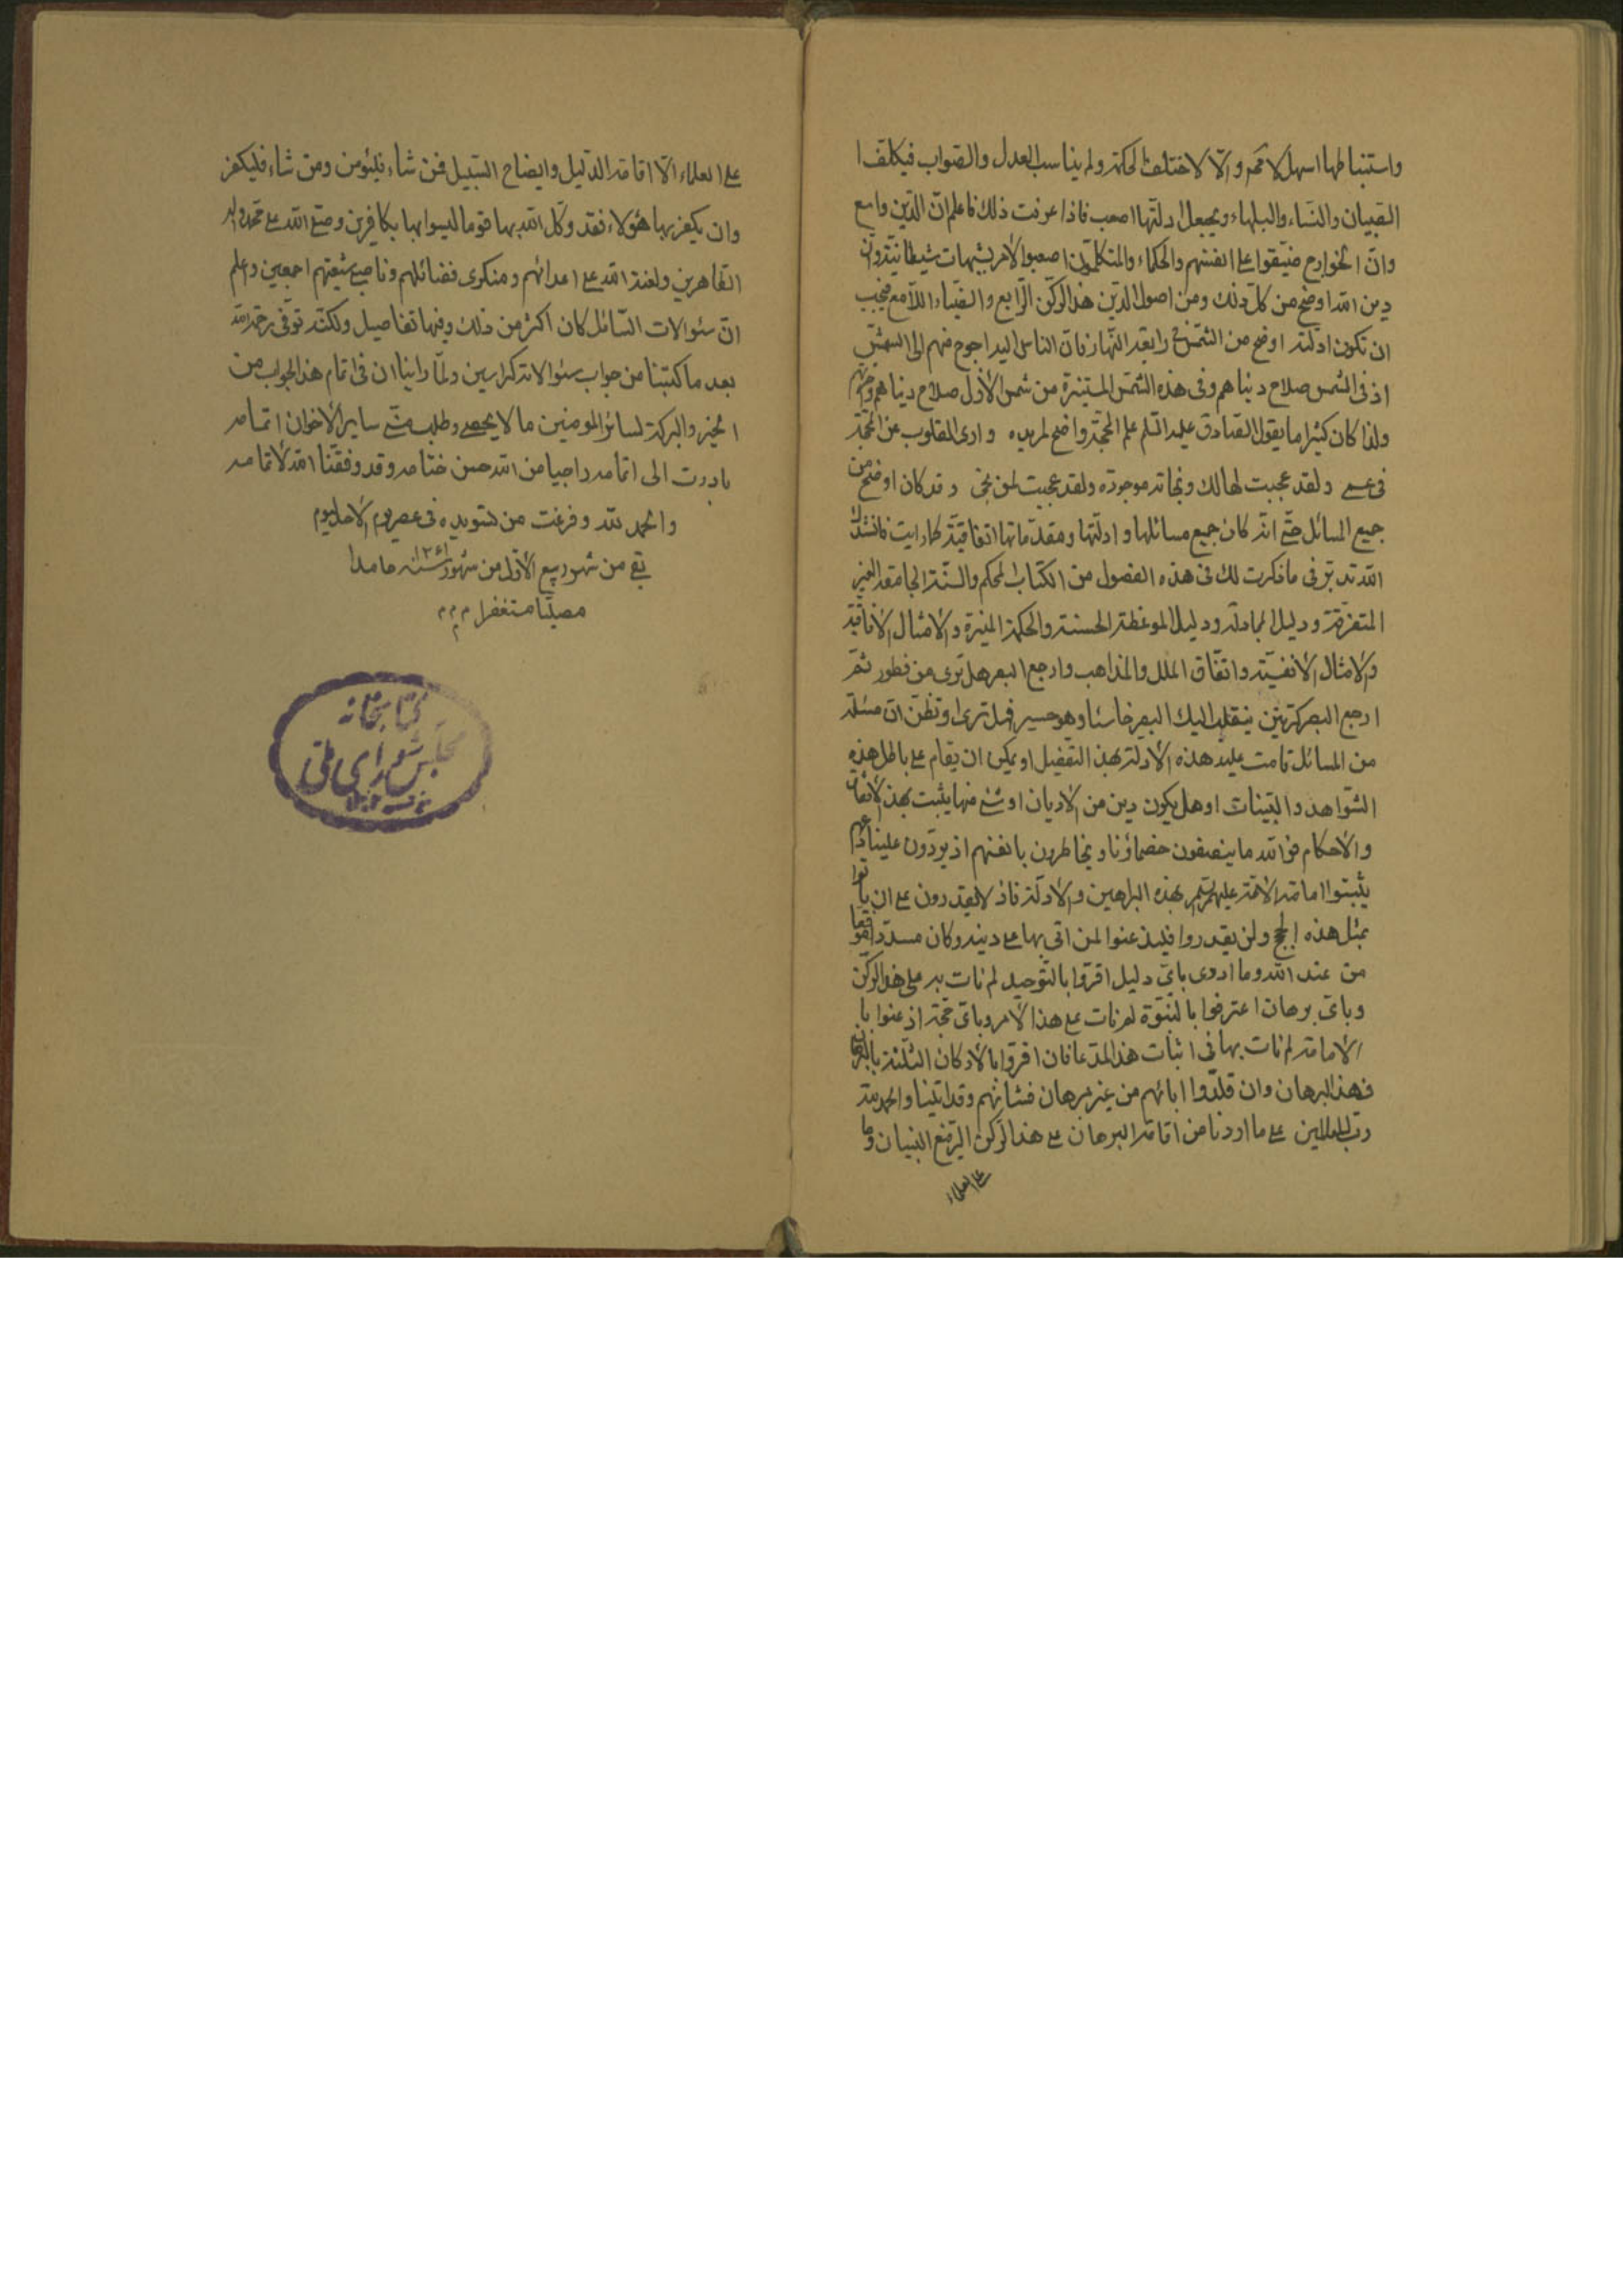 واستنباطها اسهل لامحه والّا لاختلفت الحكمة ولم يناسب العدل والصواب فيكلف ا
الصبيان والنساء والبلهاء ويجعل ادلتها اصعب فاذا عرفت ذلك فاعلم انّ الدّين واسع
وانّ الخوارج ضيّقوا على انفسهم والحكماء والمتكلمون اصعبوا الامر بشبهات شيطانية وان
دين الله اوضح من كل ذلك ومن اصول الدّين هذا الركن الرّابع والضّياء اللّامع فيجب
ان تكون ادلّته اوضح من الشمس في رابعة النّهار فان الناس اليه احوج منهم الى الشمس
اذ في الشمس صلاح دنياهم وفي هذه الشمس المستنيرة من شمس الازل صلاح دنياهم واخرتهم
ولذا كان كثيرا ما يقول الصّادق عليه السّلم علم المحجّة واضح لمريده وارى القلوب عن المحجّة
في عمى ولقد عجبت لهالك ونجاته موجودة ولقد عجبت لمن نجى وقد كان اوضح من
جميع المسائل حتى انّه كان جميع مسائلها وادلّتها ومقدّماتها اتفاقيّة كما رايت فانشدك
الله تدبّر في ما ذكرت لك في هذه الفصول من الكتاب المحكم والسّنّة الجامعة الغير
المتفرّقة ودليل المجادلة ودليل الموعظة الحسنة والحكمة المنيرة والامثال الافاقيّة
والامثال الانفسيّة واتّفاق الملل والمذاهب وارجع البصر هل ترى من فطور ثمّ
ارجع البصر كرتين ينقلب اليك البصر خاسئا وهو حسير فهل ترى او تظنّ ان مسئلة
من المسائل قامت عليه هذه الادلة بهذا التفصيل او يمكن ان يقام على باطل هذه
الشّواهد والبيّنات او هل يكون دين من الاديان او شئ منها يثبت بهذا الاتقان
والاحكام فوالله ما ينصفون خصماؤنا ويخاطرون بانفسهم اذ يردّون علينا فانّهم
يثبتوا امامة الائمّة عليهم السّلم بهذه البراهين والادلّة فاذ لا يقدرون على ان يأتوا
بمثل هذه الحجج ولن يقدروا فليذعنوا لمن اتى بها على دينه وكان مسدّدا موفّقا
من عند الله وما ادرى باىّ دليل اقرّوا بالتّوحيد لم نات به على هذا الركن
وباىّ برهان اعترفوا بالنبوّة لم نات على هذا الامر وباىّ حجّة اذعنوا با
الامامة لم نات بها في اثبات هذا المدّعا فان اقرّوا بالاركان الثلثة بالبرهان
فهذا البرهان وان قلّدوا اباءهم من غير برهان فشانهم وقد اتينا والحمد لله
ربّ العالمين على ما اردنا من اقامة البرهان على هذا الركن الرّفيع البنيان وما
على العلماء
على العلماء الّا اقامة الدّليل وايضاح السّبيل فمن شاء فليؤمن ومن شاء فليكفر
وان يكفر بها هؤلاء فقد وكّل الله بها قوما ليسوا بها بكافرين وصلّى الله على محمّد وآله
الطّاهرين ولعنة الله على اعدائهم ومنكرى فضائلهم وناصبى شيعتهم اجمعين واعلم
انّ سئوالات السّائل كان اكثر من ذلك وفيها تفاصيل ولكنّه توفّى رحمه الله
بعد ما كتبنا من جواب سئوالاته كراسين ولمّا راينا ان في اتمام هذا الجواب من
الخير والبركة لسائر المومنين ما لا يحصى وطلب منّى ساير الاخوان اتمامه
بادرت الى اتمامه راجيا من الله حسن ختامه وقد وفقنا الله لاتمامه
والحمد لله وفرغت من تسويده في عصر يوم الاحد ليوم
بقى من شهر ربيع الاوّل من شهور سنه ١٢٦١ حامدا
مصلّيا مستغفرا م م م
م
كتابخانه
مجلس شورای ملی